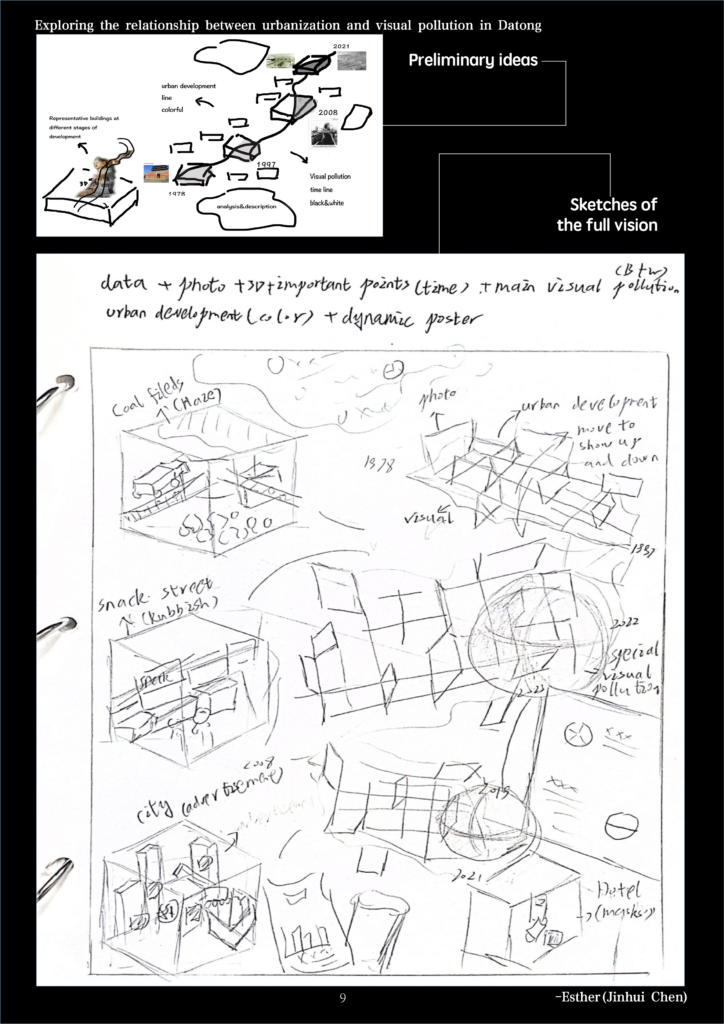 Exploring the relationship between urbanization and visual pollution in Datong
Preliminary ideas
2021
urban development
line
colorful
Representative buildings at
different stages of
development
2008
1997
Visual pollution
time line
black&white
1978
analysis&description
Sketches of
the full vision
data + photo + 3D + important points (time) + main visual pollution
(B+w)
urban development (color) + dynamic poster
coal fileds
(Haze)
photo
urban development
move to
show up
and down
1978
visual
1997
snack street
(Rubbish)
snack
2022
special
visual
pollution
2023
xxx
xxx
2008
city (advertisement)
2019
2021
Hotel
(masks)
9
-Esther(Jinhui Chen)